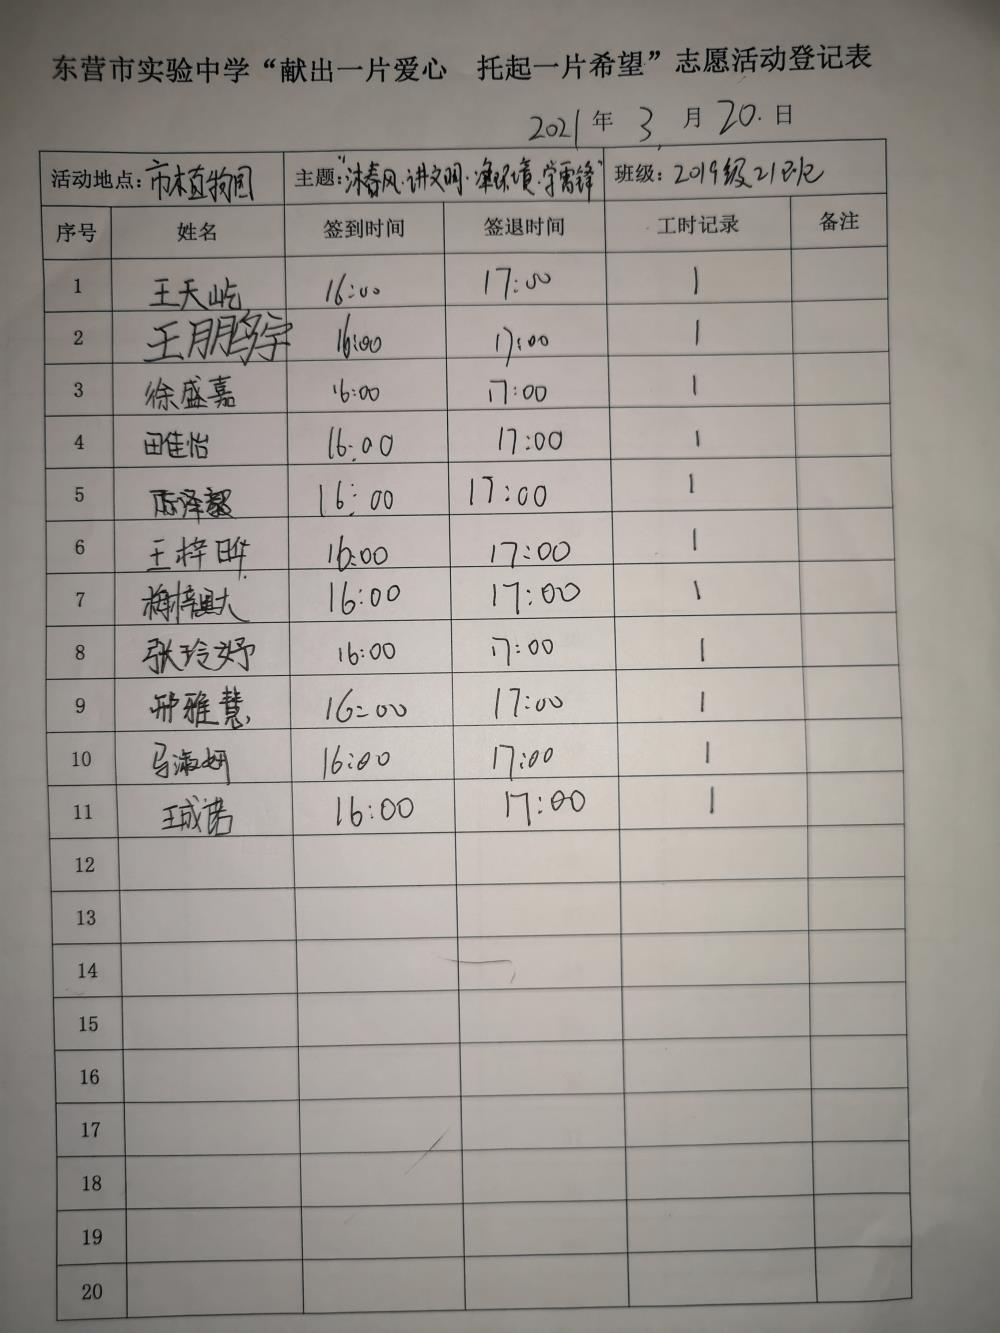 东营市实验中学“献出一片爱心 托起一片希望”志愿活动登记表
2021年 3 月 20. 日
活动地点: 市植物园 主题:“沐春风·讲文明·净环境·学雷锋” 班级: 2019级21班
序号 姓名 签到时间 签退时间 工时记录 备注
1 王天屹 16:00 17:00 1
2 王朋鹏宇 16:00 17:00 1
3 徐盛嘉 16:00 17:00 1
4 田佳怡 16:00 17:00 1
5 陈泽毅 16:00 17:00 1
6 王梓晔 16:00 17:00 1
7 16:00 17:00 1
8 张玲妤 16:00 17:00 1
9 邢雅慧 16:00 17:00 1
10 马淑妍 16:00 17:00 1
11 王成诺 16:00 17:00 1
12
13
14
15
16
17
18
19
20